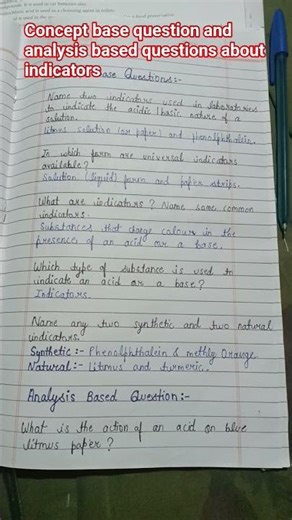 Concept base question and
analysis based questions about
indicators
ase Questions:-
Name two indicators used in laboratories
to indicate the acidic/basic nature of a
solution.
litmus solution (or paper) and phenolphthalein.
In which form are universal indicators
available?
Solution (liquid) form and paper strips.
What are indicators? Name some common
indicators.
Substances that change colour in the
presence of an acid or a base.
Which type of substance is used to
indicate an acid or a base?
Indicators.
Name any two synthetic and two natural
indicators.
Synthetic:- Phenolphthalein & methly Orange
Natural:- litmus and turmeric.
Analysis Based Question:-
What is the action of an acid on blue
litmus paper?